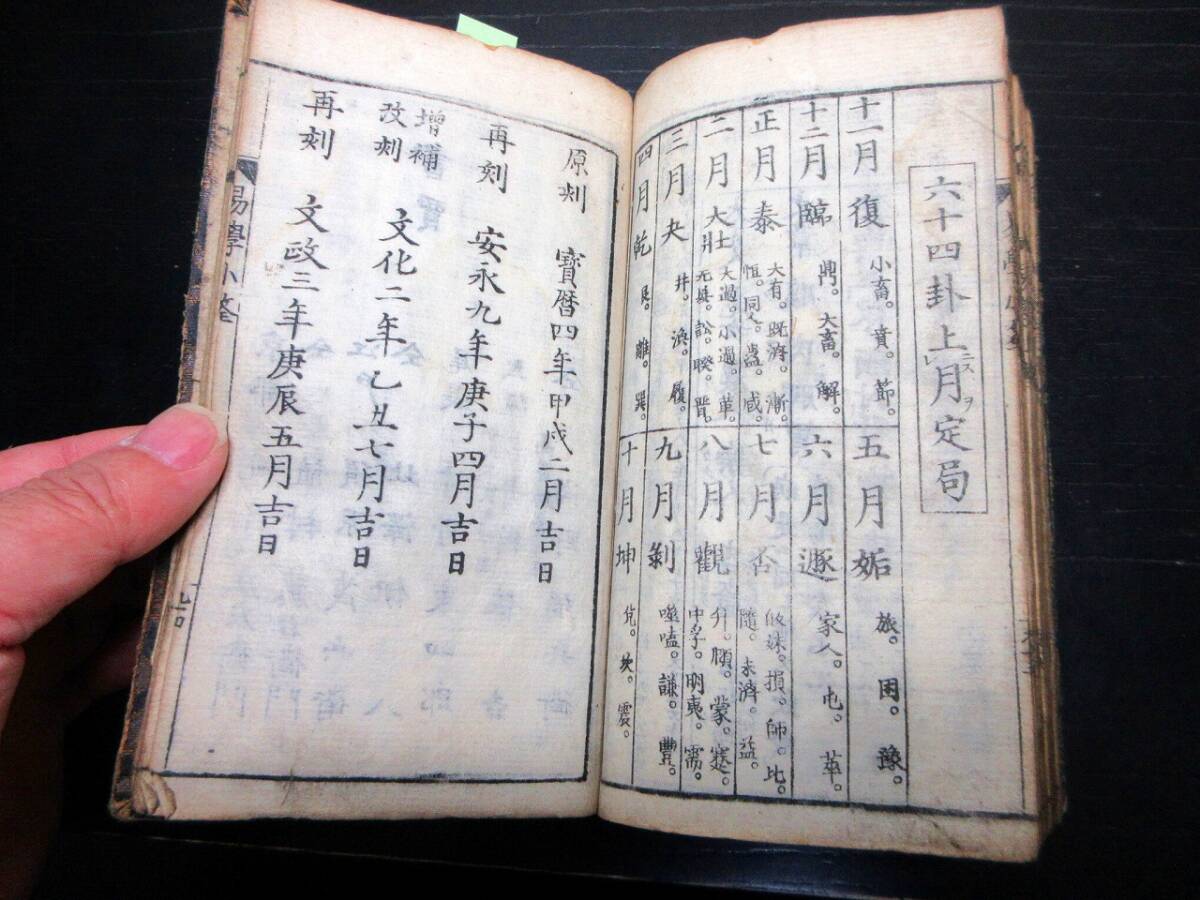 六十四卦上月定局
ニス ヲ
十一月 復 小畜。賁。節。
五月 姤 旅。困。豫。
十二月 臨 鼎。大畜。解。
六月 遯 家人。屯。萃。
正月 泰 大有。既済。漸。
恒。同人。蠱。咸。
七月 否 歸妹。損。師。比。
隨。未濟。益。
二月 大壯 大過。小過。革。
无妄。訟。睽。晋。
八月 觀 升。頤。蒙。蹇。
中孚。明夷。需。
三月 夬 井。渙。履。
九月 剝 噬嗑。謙。豐。
四月 乾 艮。離。巽。
十月 坤 兌。坎。震。
原刻 寶暦四年甲戌二月吉日
再刻 安永九年庚子四月吉日
増補
改刻 文化二年乙丑七月吉日
再刻 文政三年庚辰五月吉日
易學小筌